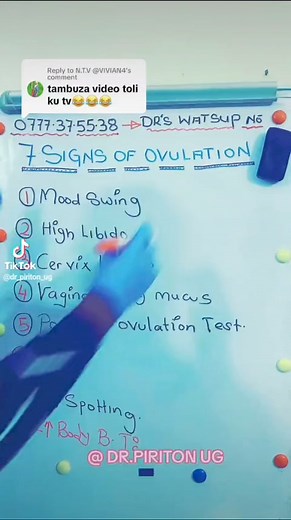 Reply to N.T.V @VIVIAN4's
comment
tambuza video toli
ku tv😂😂😂
0777.37.55.38 → DR'S WATSUP NO
7 SIGNS OF OVULATION
① Mood Swing
② High Libido
③ Cervix
④ Vagina mucus
⑤ ovulation Test.
Spotting.
↑ Body B. To
TikTok
@dr_piriton_ug
@ DR.PIRITON UG